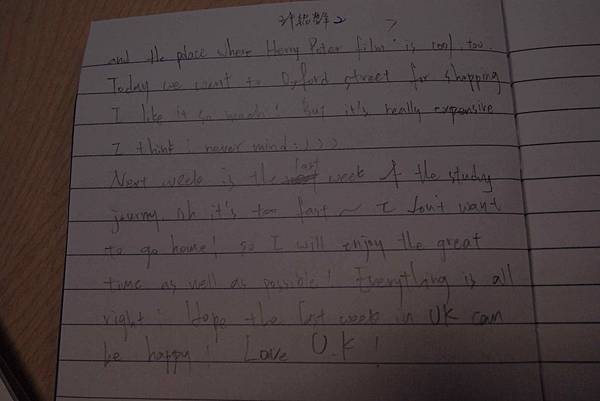 許 2
and the place where Herry Poter film is cool, too.
Today we want to Oxford street for shopping
I like it so much! But it's really expensive
I think! never mind :)))
Next week is the last week of the study
journy. oh it's too fast ~ I don't want
to go home! so I will enjoy the great
time as well as possible! Everything is all
right! Hope the last week in UK can
be happy! Love U.K!